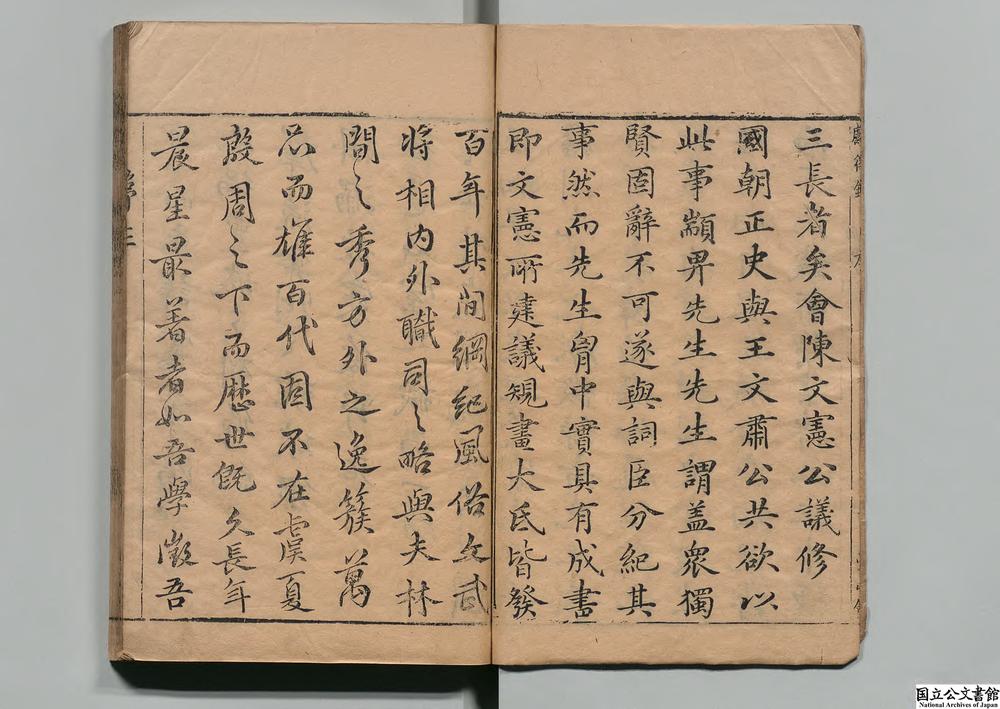 三長者矣會陳文憲公議修
國朝正史與王文肅公共欲以
此事顓畀先生先生謂盖衆獨
賢固辭不可遂與詞臣分紀其
事然而先生胷中實具有成書
即文憲所建議規畫大氐皆發
百年其間綱紀風俗文武
將相內外職司之略與夫林
間之秀方外之逸簇萬
品而雄百代固不在虞夏
殷周之下而歷世既久長年
晨星最著者如吾學徵吾
国立公文書館
National Archives of Japan